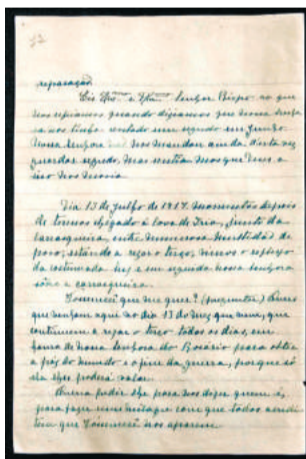 reparação.
Eis Ex.mo e Rev.mo Senhor Bispo ao que
nos referiamos quando diziamos que Nossa Senho-
ra nos tinha revelado um segredo em Junho.
Nossa Senhora não nos mandou ainda desta vez
guardar segredo, mas sentiamos que Deus a
isso nos movia.
Dia 13 de Julho de 1917. Momentos depois
de termos chegado à Cova de Iria, junto da
carrasqueira, entre numerosa multidão de
povo, estando a rezar o terço, vimos o reflexo
da costumada luz e em seguida Nossa Senhora
sobre a carrasqueira.
Vossemecê que me quer? (perguntei) Quero
que venham aqui no dia 13 do mez que vem, que
continuem a rezar o terço todos os dias, em
honra de Nossa Senhora do Rosário para obter
a paz do mundo e o fim da guerra, porque só
ela lhes poderá valer.
Queria pedir-lhe para nos dizer quem é,
para fazer um milagre com que todos acredi-
tem que Vossemecê nos aparece.